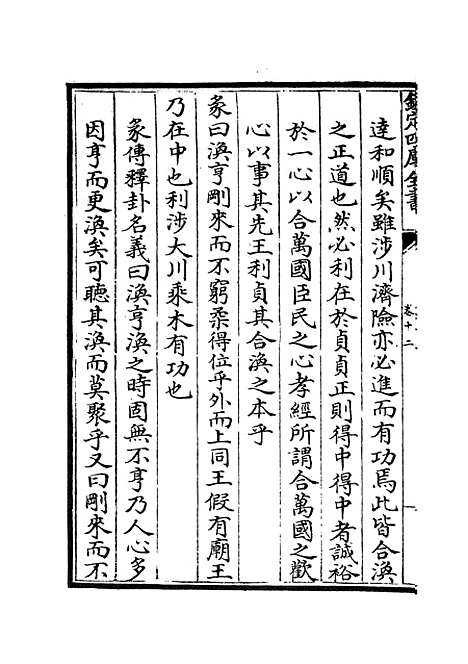 欽定四庫全書
卷十二
達和順矣雖涉川濟險亦必進而有功焉此皆合渙
之正道也然必利在於貞貞正則得中得中者誠裕
於一心以合萬國臣民之心孝經所謂合萬國之歡
心以事其先王利貞其合渙之本乎
彖曰渙亨剛來而不窮柔得位乎外而上同王假有廟王
乃在中也利涉大川乘木有功也
彖傳釋卦名義曰渙亨渙之時固無不亨乃人心多
因亨而更渙矣可聽其渙而莫聚乎又曰剛來而不